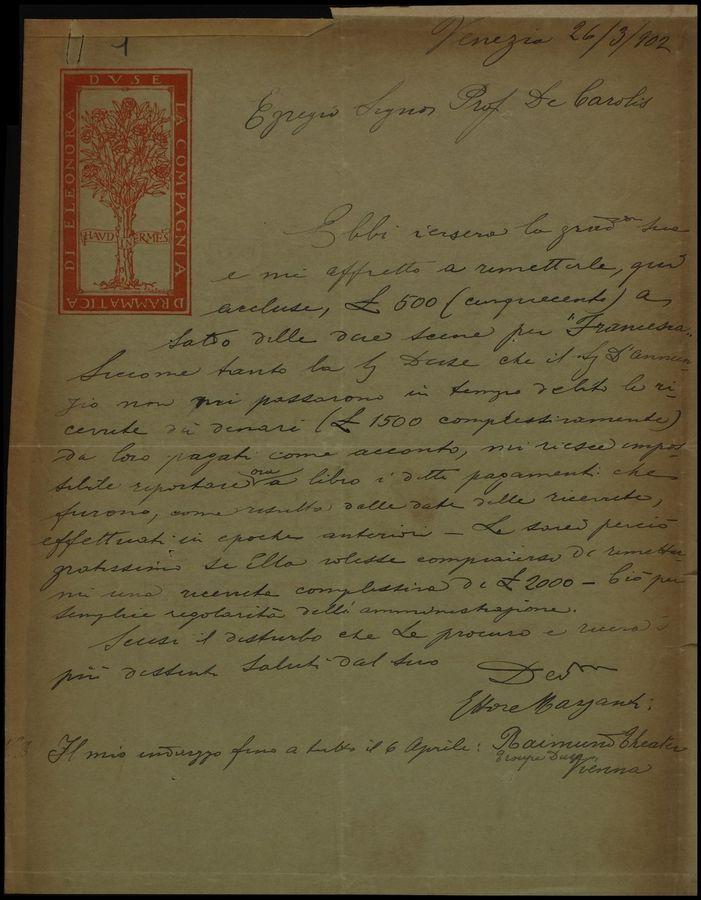 1
Venezia 26/3/902
DI ELEONORA DVSE LA COMPAGNIA DRAMMATICA
HAVD INERMES
Egregio Signor Prof. De Carolis
Ebbi iersera la grad.ma sua
e mi affretto a rimetterle, qui
accluse, £ 500 (cinquecento) a
saldo delle due scene per "Francesca"
Siccome tanto la Sg Duse che il Sg D'Annun-
zio non mi passarono in tempo debito le ri-
cevute dei denari (£ 1500 complessivamente)
da loro pagati come acconto, mi riesce impos-
sibile riportare ora a libro i detti pagamenti che
furono, come risulta dalle date delle ricevute,
effettuati in epoche anteriori — Le sarei perciò
gratissimo se Ella volesse compiacersi di rimetter
mi una ricevuta complessiva di £ 2000 — Ciò per
semplice regolarità dell'amministrazione.
Scusi il disturbo che Le procuro e riceva i
più distinti saluti dal suo
Dev.mo
Ettore Mazzanti
Il mio indirizzo fino a tutto il 6 Aprile: Raimund Theater
Troupe Duse
Vienna